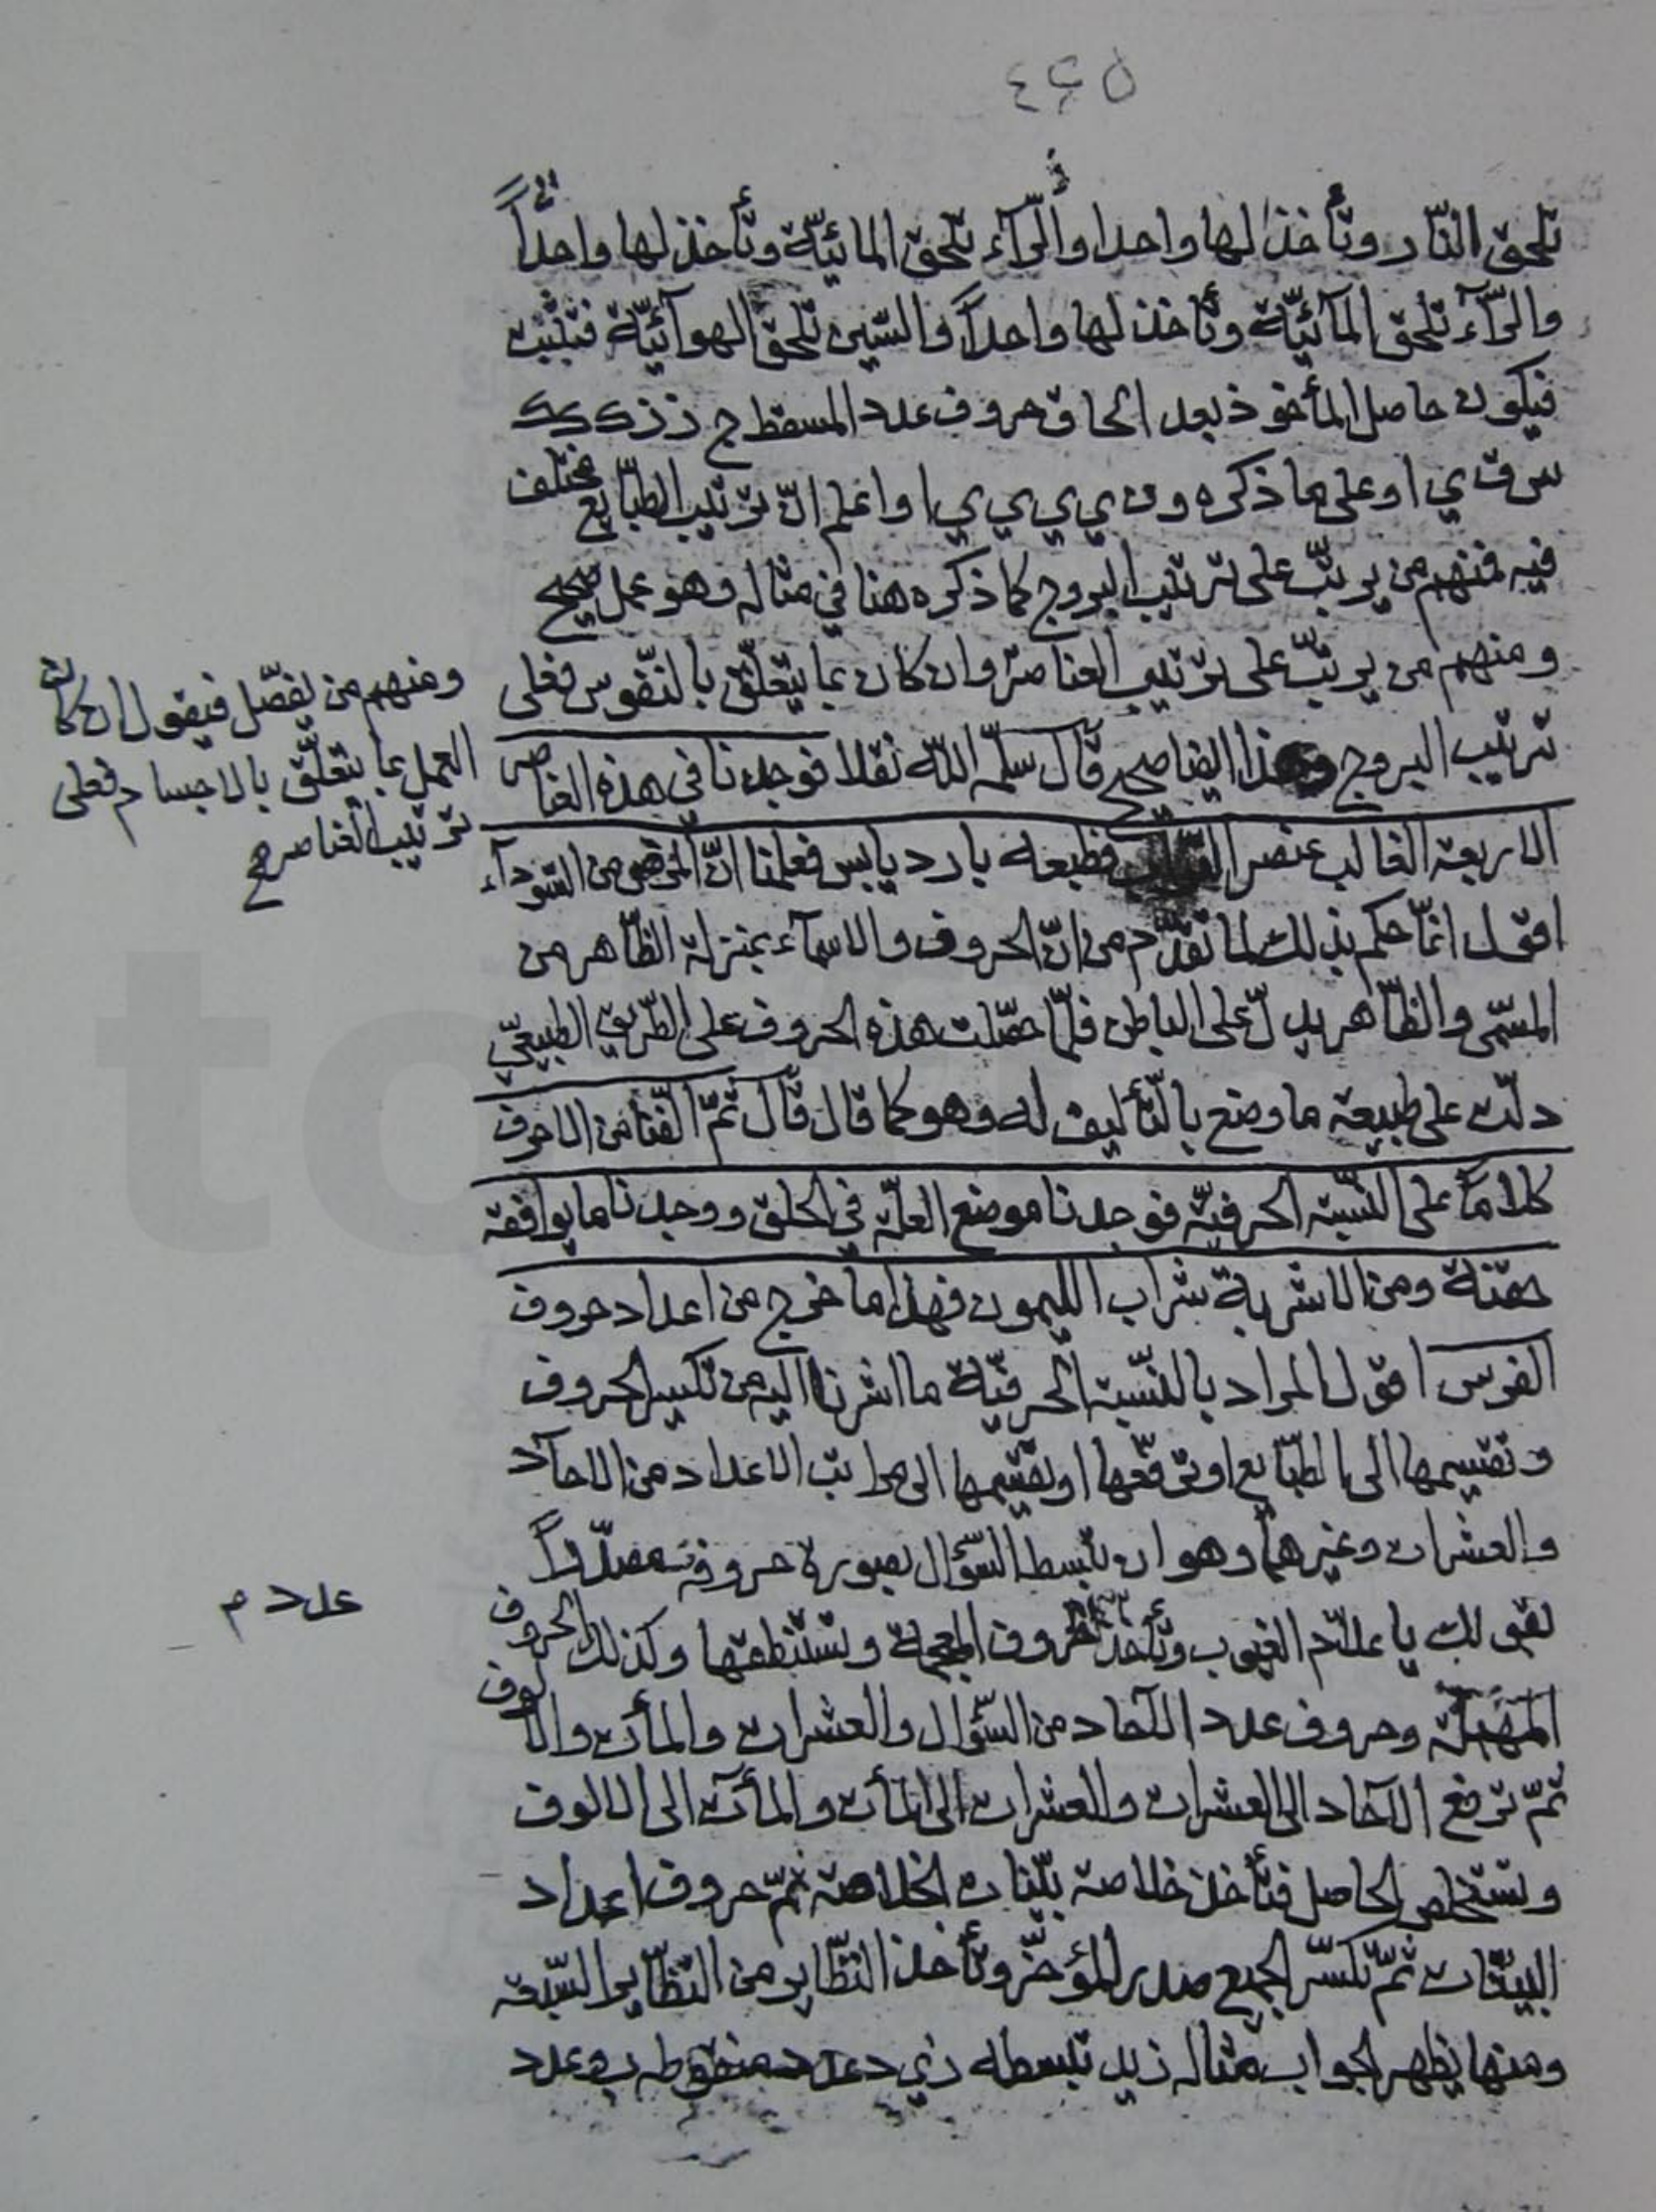 ٤٤٥
تلحق النّار وتأخذ لها واحدا والرّآء تلحق المائيّة وتأخذ لها واحداً
والرّآء تلحق المآئيّة وتأخذ لها واحداً والسّين تلحق الهوآئيّة فتثبت
فيكون حاصل المأخوذ بعد الحاق حروف عدد المسقط ج ز ز ك ك ك
س ق ي ا وعلى ما ذكره و ن ي ي ي ي ا واعلم انّ ترتيب الطبّايع مختلف
فيه فمنهم من يرتّب على ترتيب البروج كما ذكره هنا في مثاله وهو عمل صحيح
ومنهم من يرتّب على ترتيب العناصر وان كان بما يتعلّق بالنّفوس فعلى
ومنهم من يفصّل فيقول ان كان
العمل بما يتعلّق بالاجسام فعلى
ترتيب العناصر صح
ترتيب البروج وهذا ايضا صحيح قال سلّمه اللّه نقلا فوجدنا في هذه العناصر
الاربعة الغالب عنصر التراب فطبعه بارد يابس فعلمنا انّ المرض من السّودآء
اقول انّما حكم بذلك لما تقدّم من انّ الحروف والاسمآء بمنزلة الظّاهر من
المسمّى والظّاهر يدلّ على الباطن فلمّا حصّلت هذه الحروف على الطّريق الطبيعيّ
دلّت على طبيعة ما وضع بالتّأليف له وهو كما قال قال ثمّ الّفنا من الاحرف
كلاماً على النّسبة الحرفيّة فوجدنا موضع العلّة في الحلق ووجدنا ما يوافقه
حقنة ومن الاشربة شراب الليمون فهذا ما خرج من اعداد حروف
الفرس اقول المراد بالنّسبة الحرفيّة ما اشرنا اليه من تكسير الحروف
وتقسيمها الى الطبّايع او ترفّعها او تقسيمها الى مراتب الاعداد من الاحآد
والعشرات وغيرهما وهو ان تبسط السّؤال بصورة حروفه مصدّراً
بقولك يا علّام الغيوب وتأخذ الحروف المعجمة وتستنطقها وكذلك الحروف
عدد م
المهملة وحروف عدد الآحاد من السّؤال والعشرات والمأت والالوف
ثمّ ترفع الآحاد الى العشرات والعشرات الى المأت والمأت الى الالوف
وتستخلص الحاصل فتأخذ خلاصة بيّنات الخلاصة ثمّ حروف اعداد
البيّنات ثمّ تكسّر الجميع صدر المؤخّر وتأخذ النّظاير من النّظاير السّبعة
ومنها يظهر الجواب مثاله زيد تبسطه ز ي د عدد منقوطه يز وعدد